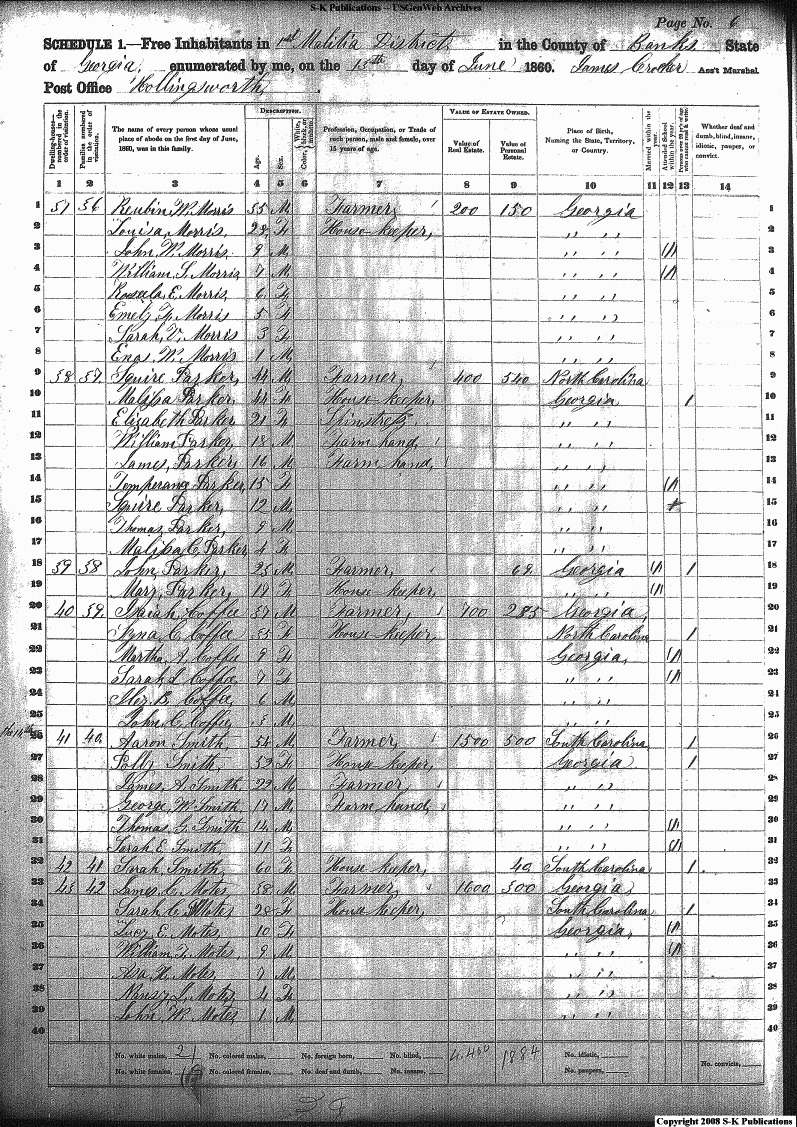 S-K Publications – USGenWeb Archives
Page No. 6
SCHEDULE 1.—Free Inhabitants in 1st Malitia District in the County of Banks State
of Georgia, enumerated by me, on the 13th day of June 1860. James Crocker Ass't Marshal.
Post Office Hollingsworth.
DESCRIPTION. VALUE OF ESTATE OWNED.
Dwelling-houses—numbered in the order of visitation.
Families numbered in the order of visitation.
The name of every person whose usual place of abode on the first day of June, 1860, was in this family.
Age.
Sex.
Color, White, black, or mulatto.
Profession, Occupation, or Trade of each person, male and female, over 15 years of age.
Value of Real Estate.
Value of Personal Estate.
Place of Birth, Naming the State, Territory, or Country.
Married within the year.
Attended School within the year.
Whether deaf and dumb, blind, insane, idiotic, pauper, or convict.
1 2 3 4 5 6 7 8 9 10 11 12 13 14
1 37 36 Reubin W. Morris 35 M Farmer, 200 150 Georgia 1
2 Louisa, Morris, 28 F House keeper, ,, ,, 2
3 John W. Morris 9 M ,, ,, /1 3
4 William S. Morris 7 M ,, ,, /1 4
5 E. Morris, 6 F ,, ,, 5
6 Emely F. Morris 5 F ,, ,, 6
7 Sarah, V. Morris 3 F ,, ,, 7
8 Enas W. Morris 1 M ,, ,, 8
9 38 37 Squire Parker, 44 M Farmer, 400 540 North Carolina 9
10 Malissa Parker, 44 F House keeper, Georgia / 10
11 Elizabeth Parker 21 F Spinstress ,, ,, 11
12 William Parker, 18 M Farm hand, ,, ,, 12
13 James, Parker, 16 M Farm hand, ,, ,, 13
14 Temperance Parker, 15 F ,, ,, /1 14
15 Squire Parker, 12 M ,, ,, 15
16 Thomas, Parker, 9 M ,, ,, 16
17 Malissa C. Parker, 4 F ,, ,, 17
18 39 38 John, Parker, 25 M Farmer, 69 Georgia /1 / 18
19 Mary, Parker, 17 F House keeper, ,, ,, /1 19
20 40 39 Isaiah, Coffee 37 M Farmer, 400 285 Georgia, 20
21 C. Coffee 35 F House keeper, North Carolina / 21
22 Martha, A. Coffee 9 F Georgia, /1 22
23 Sarah L Coffee, 7 F ,, ,, /1 23
24 B. Coffee, 6 M ,, ,, 24
25 John, C. Coffee, 3 M ,, ,, 25
the 14th
26 41 40 Aaron Smith, 54 M Farmer, 1500 500 South Carolina, / 26
27 Smith, 52 F House keeper, Georgia / 27
28 James, A. Smith, 22 M Farmer ,, ,, 28
29 George, W. Smith, 17 M Farm hand, ,, ,, 29
30 Thomas, G. Smith 14 M ,, ,, /1 30
31 Sarah E Smith, 11 F ,, ,, /1 31
32 42 41 Sarah Smith, 60 F House keeper, 40 South Carolina / 32
33 43 42 James, C. Motes 38 M Farmer, 1600 300 Georgia 33
34 Sarah C Motes 28 F House keeper, South Carolina / 34
35 Lucy E. Motes, 10 F Georgia, /1 35
36 William F. Motes 9 M ,, ,, /1 36
37 Asa H. Motes, 7 M ,, ,, 37
38 Nancy L. Motes 4 F ,, ,, 38
39 John W. Motes 1 M ,, ,, 39
40 40
No. white males, 21 No. colored males, No. foreign born, No. blind, 1884 No. idiotic,
No. white females, 18 No. colored females, No. deaf and dumb, No. insane, No. paupers, No. convicts,
Copyright 2008 S-K Publications